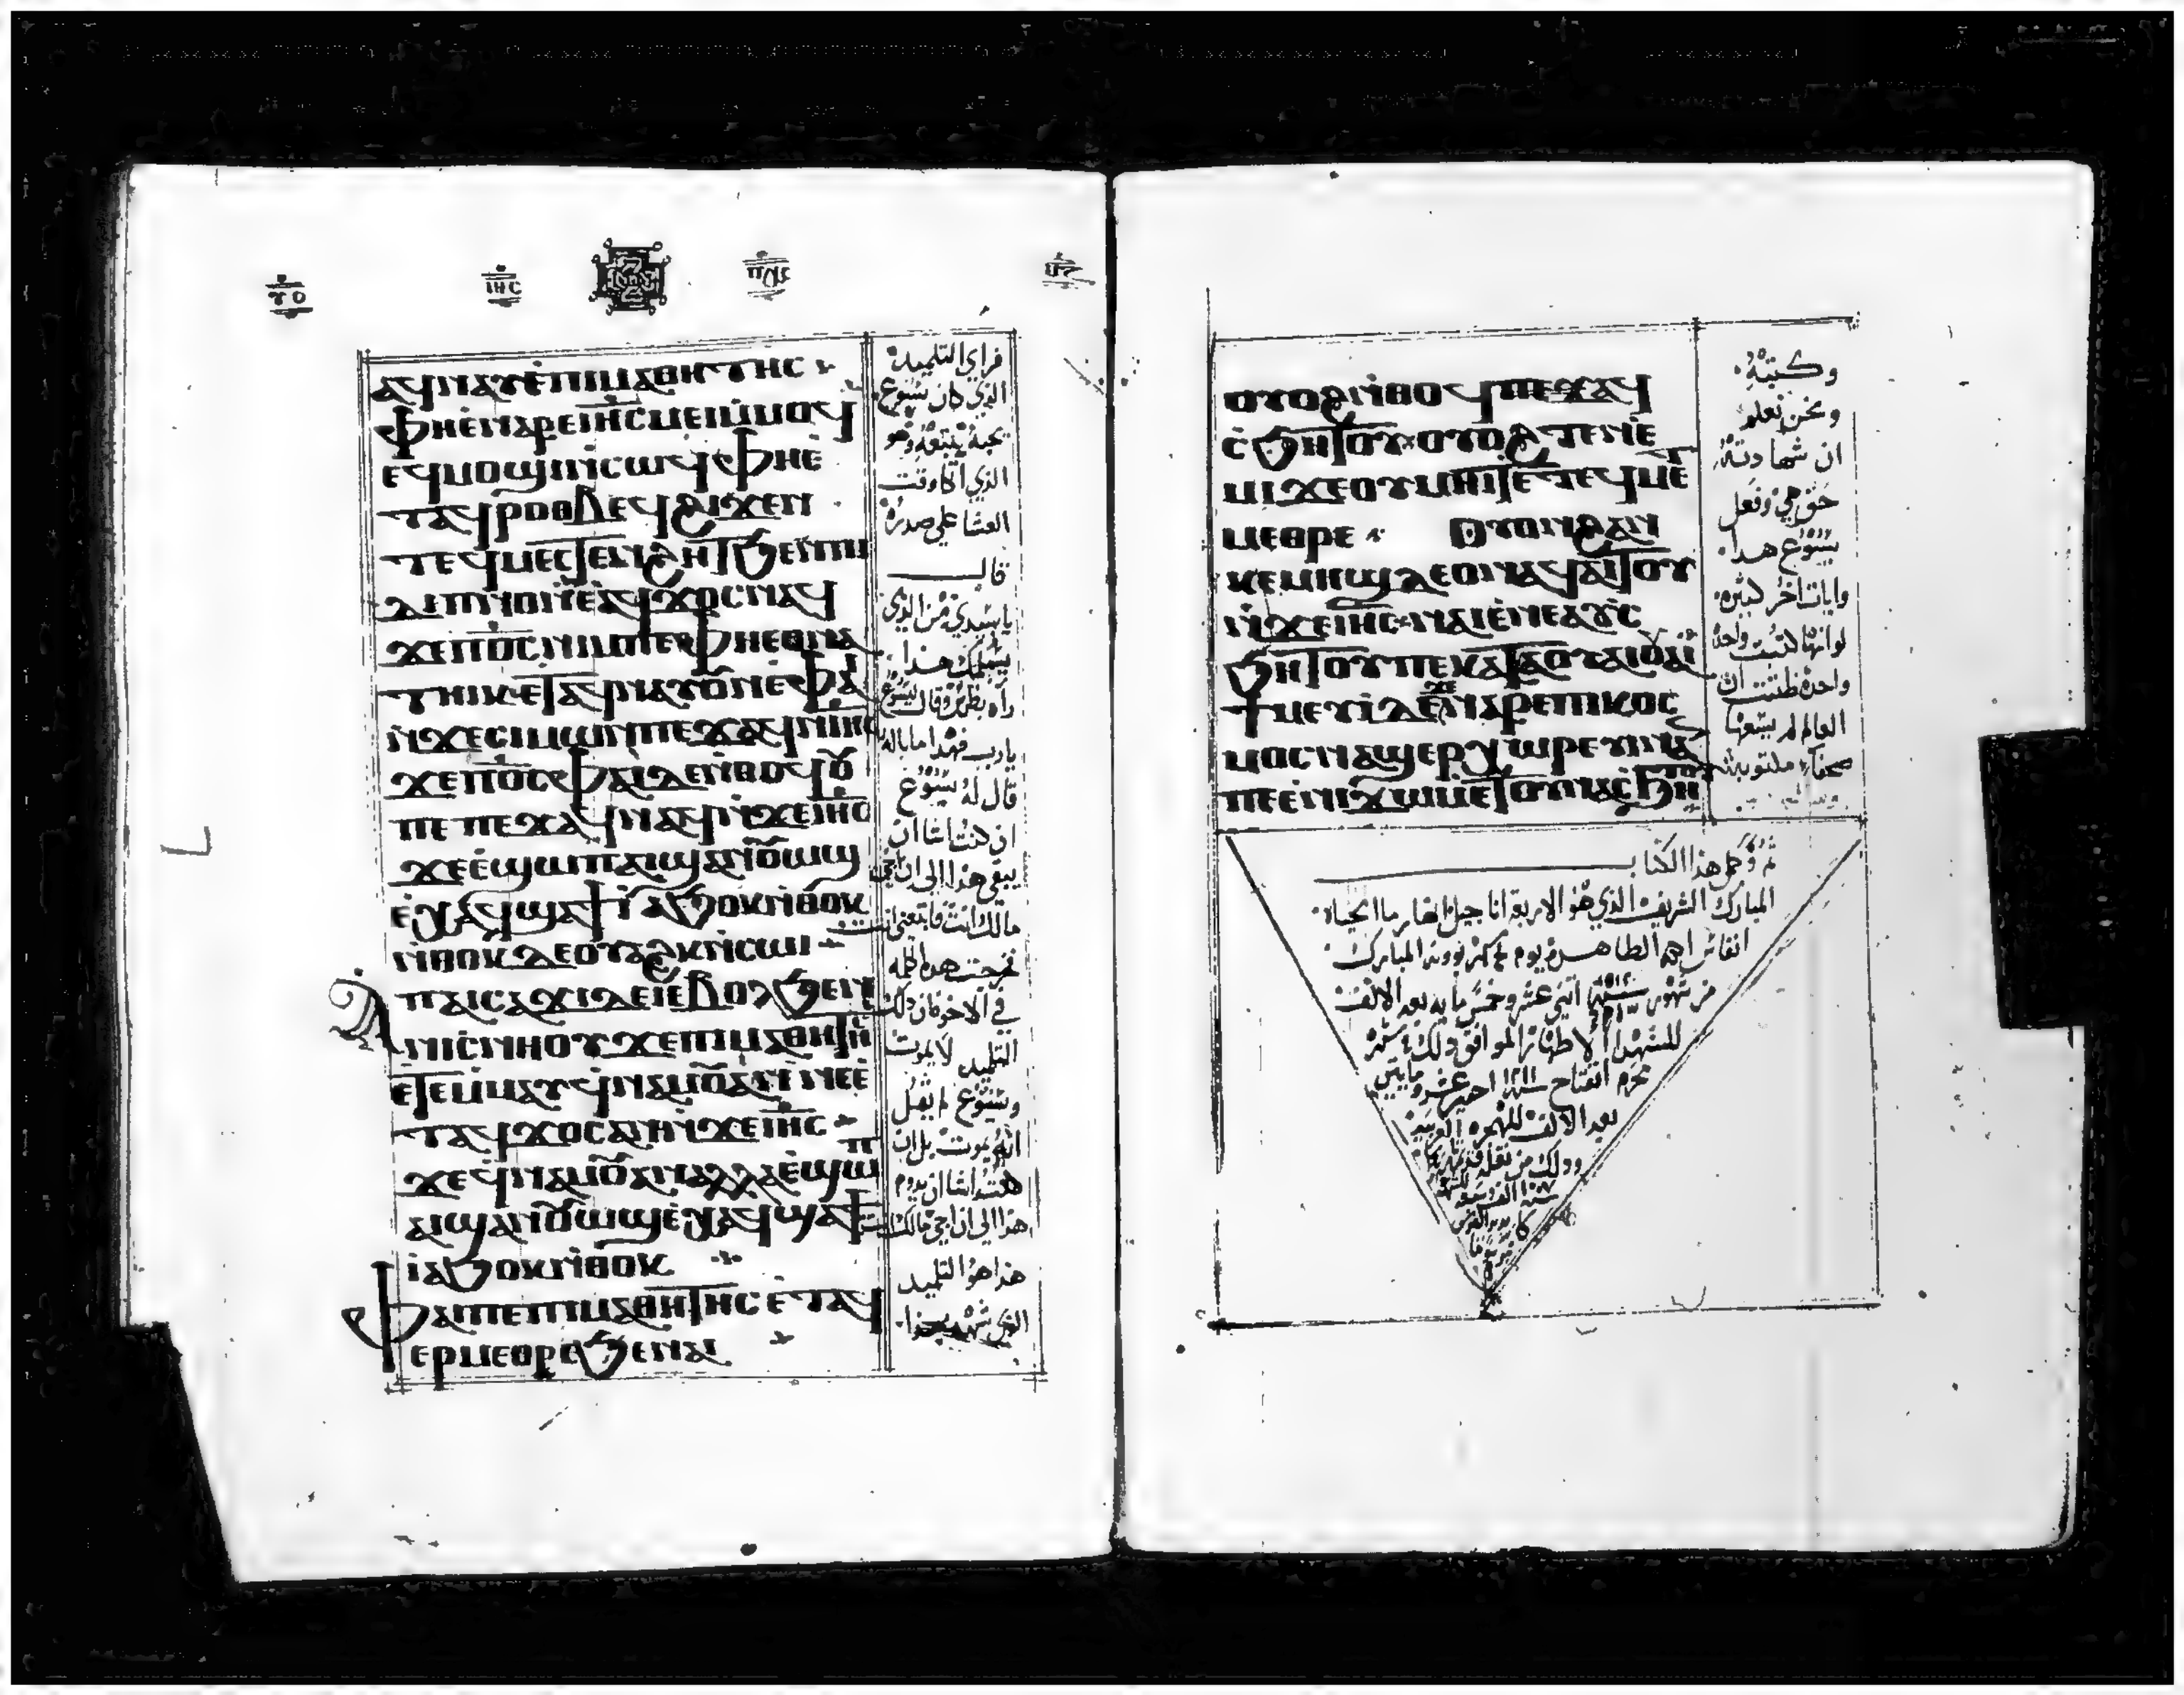 ⲓⲏⲥ
ⲁϥⲛⲁⲩⲉⲡⲓⲙⲁⲑⲏⲧⲏⲥ
ⲫⲏⲉⲛⲁⲣⲉⲓⲏⲥⲙⲉⲓⲙⲙⲟϥ
ⲉϥⲙⲟϣⲓⲛⲥⲱϥⲫⲏⲉ
ⲧⲁϥⲣⲟⲑⲃⲉϥϩⲓϫⲉⲛ
ⲧⲉϥⲙⲉⲥⲧⲉⲛϩⲏⲧϧⲉⲛⲡⲓ
ⲇⲓⲡⲛⲟⲛⲉⲁϥϫⲟⲥⲛⲁϥ
ϫⲉⲡⲟⲥⲛⲓⲙⲡⲉⲫⲏⲉⲑⲛⲁ
ⲧⲏⲓⲕⲉⲧⲁϥⲛⲁⲩⲟⲛⲉⲫⲁⲓ
ⲛϫⲉⲥⲓⲙⲱⲛⲡⲉϫⲁϥⲛⲓⲏⲥ
ϫⲉⲡⲟⲥⲫⲁⲓⲇⲉⲛⲑⲟϥⲟⲩ
ⲡⲉ ⲡⲉϫⲁϥⲛⲁϥⲛϫⲉⲓⲏⲥ
ϫⲉⲉϣⲱⲡⲁⲓϣⲁⲛⲟⲩⲱϣ
ⲉⲭⲁϥϣⲁϯⲓⲁϧⲟⲕⲛⲑⲟⲕ
ⲛⲑⲟⲕⲇⲉⲟⲩⲁϩⲕⲛⲥⲱⲓ
ⲁⲡⲁⲓⲥⲁϫⲓⲇⲉⲓⲉⲃⲟⲗϧⲉⲛ
ⲛⲓⲥⲛⲏⲟⲩϫⲉⲡⲓⲙⲁⲑⲏⲧⲏⲥ
ⲉⲧⲉⲙⲙⲁⲩϥⲛⲁⲙⲟⲩⲁⲛⲛⲉⲉ
ⲧⲁϥϫⲟⲥⲁⲛⲛϫⲉⲓⲏⲥ
ϫⲉϥⲛⲁⲙⲟⲩⲁⲛⲁⲗⲗⲁⲉϣⲱⲡ
ⲁⲓϣⲁⲛⲟⲩⲱϣⲉⲭⲁϥϣⲁϯ
ⲓⲁϧⲟⲕⲛⲑⲟⲕ
ⲫⲁⲓⲡⲉⲡⲓⲙⲁⲑⲏⲧⲏⲥⲉⲧⲁϥ
ⲉⲣⲙⲉⲑⲣⲉϧⲉⲛⲁⲓ
فراي التلميد
الذي كان يسوع
يحبه يتبعه وهو
الذي اتكا وقت
العشا علي صدره
قال
ياسيدي من الذي
يسلمك هذا
راه بطرس وقال ليسوع
يارب فهدا ما باله
قال له يسوع
ان كنت اشا ان
يبقي هذا الي ان اجي
مالك انت فاتبعني انت
فخرجت هده الكلمه
في الاخوه ان دلك
التلميد لا يموت
ويسوع لم يقل
انه يموت بل ان
كنت اشا ان يدوم
هذا الي ان اجي مالك
هذا هو التلميد
الذي شهد بهذا
ⲟⲩⲟϩⲛⲑⲟϥⲡⲉⲧⲁϥ
ⲥϧⲏⲧⲟⲩⲟⲩⲟϩⲧⲉⲛⲉ
ⲙⲓϫⲉⲟⲩⲙⲏⲓⲧⲉⲧⲉϥⲙⲉ
ⲙⲉⲑⲣⲉ ⲟⲩⲟⲛϩⲁⲛ
ⲕⲉⲙⲏϣⲇⲉⲟⲛⲁϥⲁⲓⲧⲟⲩ
ⲛϫⲉⲓⲏⲥⲛⲁⲓⲉⲛⲉⲁⲩⲥ
ϧⲏⲧⲟⲩⲡⲉⲕⲁⲧⲁⲟⲩⲁⲓⲟⲩⲁⲓ
ϯⲙⲉⲩⲓϫⲉⲛⲁⲣⲉⲡⲓⲕⲟⲥ
ⲙⲟⲥⲛⲁϣⲉⲣⲭⲱⲣⲉⲩⲛⲁ
ⲡⲉⲉⲛⲓϫⲱⲙⲉⲧⲟⲩⲛⲁⲥϧⲏⲧⲟⲩ
وكتبه
ونحن نعلم
ان شهادته
حق هي وفعل
يسوع هدا
وايات اخر كثيره
لو انها كتبت واحده
واحده ظننت ان
العالم لم يسعها
صحفا مكتوبة
تم وكمل هذا الكتاب
المبارك الشريف الذي هو الاربعة اناجيل انهار ما الحياه
يوم المبارك
من شهور سنة ١٥١٢ اتني عشر وخمس مايه بعد الالف
للشهدا الاطهار الموافق دلك شهر
محرم افتتاح سنة ١٢١١ احد عشر ومايتين
بعد الالف للهجره العربيه
ودلك من نقله